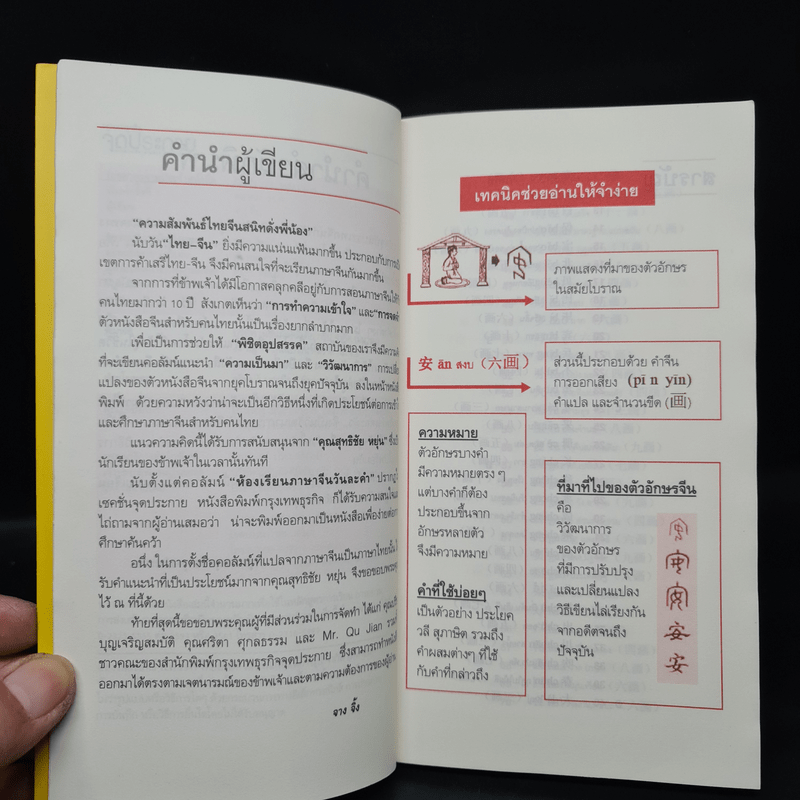 คำนำผู้เขียน
"ความสัมพันธ์ไทยจีนสนิทดั่งพี่น้อง"
นับวัน"ไทย-จีน" ยิ่งมีความแน่นแฟ้นมากขึ้น ประกอบกับการเปิด
เขตการค้าเสรีไทย-จีน จึงมีคนสนใจที่จะเรียนภาษาจีนกันมากขึ้น
จากการที่ข้าพเจ้าได้มีโอกาสคลุกคลีอยู่กับการสอนภาษาจีนให้
คนไทยมากว่า 10 ปี สังเกตเห็นว่า "การทำความเข้าใจ" และ"การจดจำ
ตัวหนังสือจีนสำหรับคนไทยนั้นเป็นเรื่องยากลำบากมาก
เพื่อเป็นการช่วยให้ "พิชิตอุปสรรค" สถาบันของเราจึงมี
ที่จะเขียนคอลัมน์แนะนำ "ความเป็นมา" และ "วิวัฒนาการ" การเปลี่ยน
แปลงของตัวหนังสือจีนจากยุคโบราณจนถึงยุคปัจจุบัน ลงในหน้าหนังสือ
พิมพ์ ด้วยความหวังว่าน่าจะเป็นอีกวิธีหนึ่งที่เกิดประโยชน์ต่อการ
และศึกษาภาษาจีนสำหรับคนไทย
แนวความคิดนี้ได้รับการสนับสนุนจาก "คุณสุทธิชัย หยุ่น"
นักเรียนของข้าพเจ้าในเวลานั้นทันที
นับตั้งแต่คอลัมน์ "ห้องเรียนภาษาจีนวันละคำ" ปรากฏ
เซคชั่นจุดประกาย หนังสือพิมพ์กรุงเทพธุรกิจ ก็ได้รับความสนใจ
ไถ่ถามจากผู้อ่านเสมอว่า น่าจะพิมพ์ออกมาเป็นหนังสือเพื่อง่ายต่อการ
ศึกษาค้นคว้า
อนึ่ง ในการตั้งชื่อคอลัมน์ที่แปลจากภาษาจีนเป็นภาษาไทยนั้น
รับคำแนะนำที่เป็นประโยชน์มากจากคุณสุทธิชัย หยุ่น จึงขอขอบพระคุณ
ไว้ ณ ที่นี้ด้วย
ท้ายที่สุดนี้ขอขอบพระคุณผู้ที่มีส่วนร่วมในการจัดทำ ได้แก่
บุญเจริญสมบัติ คุณศริตา ศุกลธรรม และ Mr. Qu Jian รวม
ชาวคณะของสำนักพิมพ์กรุงเทพธุรกิจจุดประกาย ซึ่งสามารถทำหนังสือ
ออกมาได้ตรงตามเจตนารมณ์ของข้าพเจ้าและตามความต้องการของผู้อ่าน
จาง จิ้ง
เทคนิคช่วยอ่านให้จำง่าย
ภาพแสดงที่มาของตัวอักษร
ในสมัยโบราณ
安 ān สงบ (六画)
ส่วนนี้ประกอบด้วย คำจีน
การออกเสียง (pī n yīn)
คำแปล และจำนวนขีด (画)
ความหมาย
ตัวอักษรบางคำ
มีความหมายตรง ๆ
แต่บางคำก็ต้อง
ประกอบขึ้นจาก
อักษรหลายตัว
จึงมีความหมาย
คำที่ใช้บ่อยๆ
เป็นตัวอย่าง ประโยค
วลี สุภาษิต รวมถึง
คำผสมต่างๆ ที่ใช้
กับคำที่กล่าวถึง
ที่มาที่ไปของตัวอักษรจีน
คือ
วิวัฒนาการ
ของตัวอักษร
ที่มีการปรับปรุง
และเปลี่ยนแปลง
วิธีเขียนไล่เรียงกัน
จากอดีตจนถึง
ปัจจุบัน
安
安